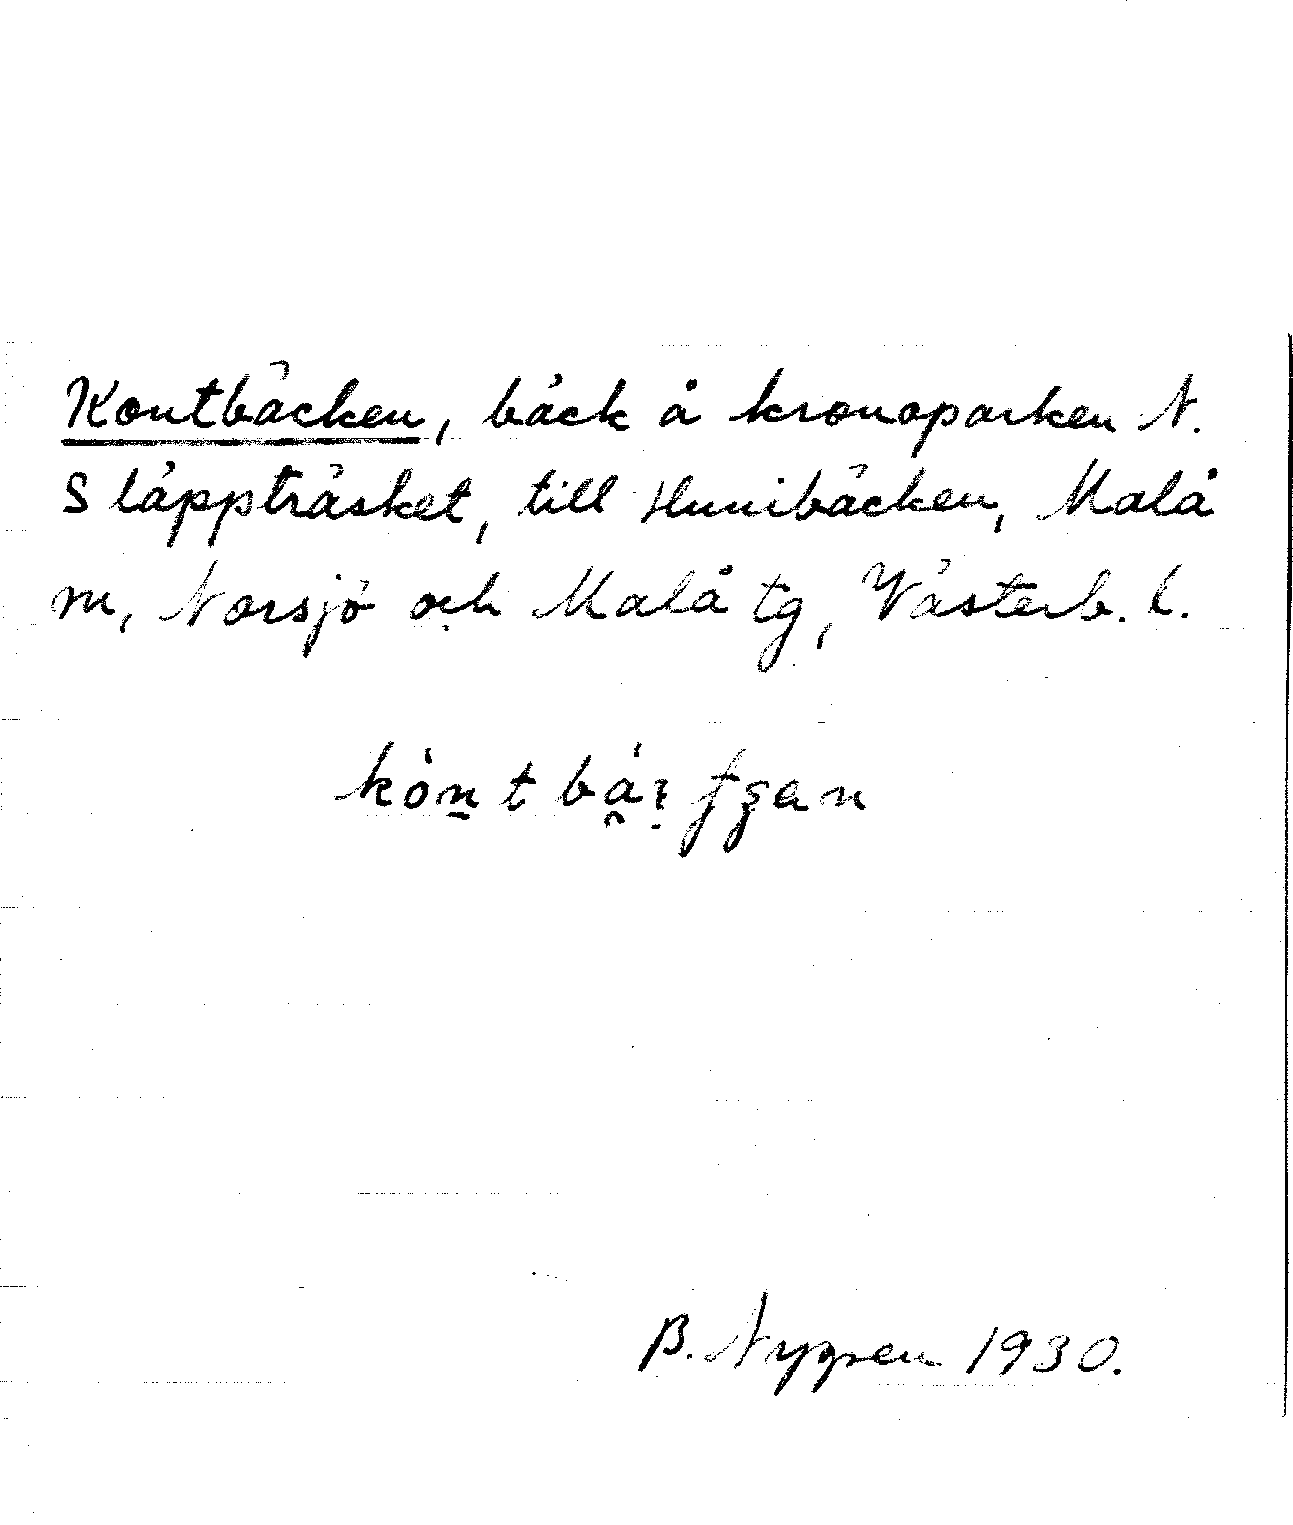 Kontbäcken, bäck å kronoparken N.
Släppträsket, till Hunibäcken, Malå
m, Norsjö och Malå tg, Västerb. l.
B. Nygren 1930.